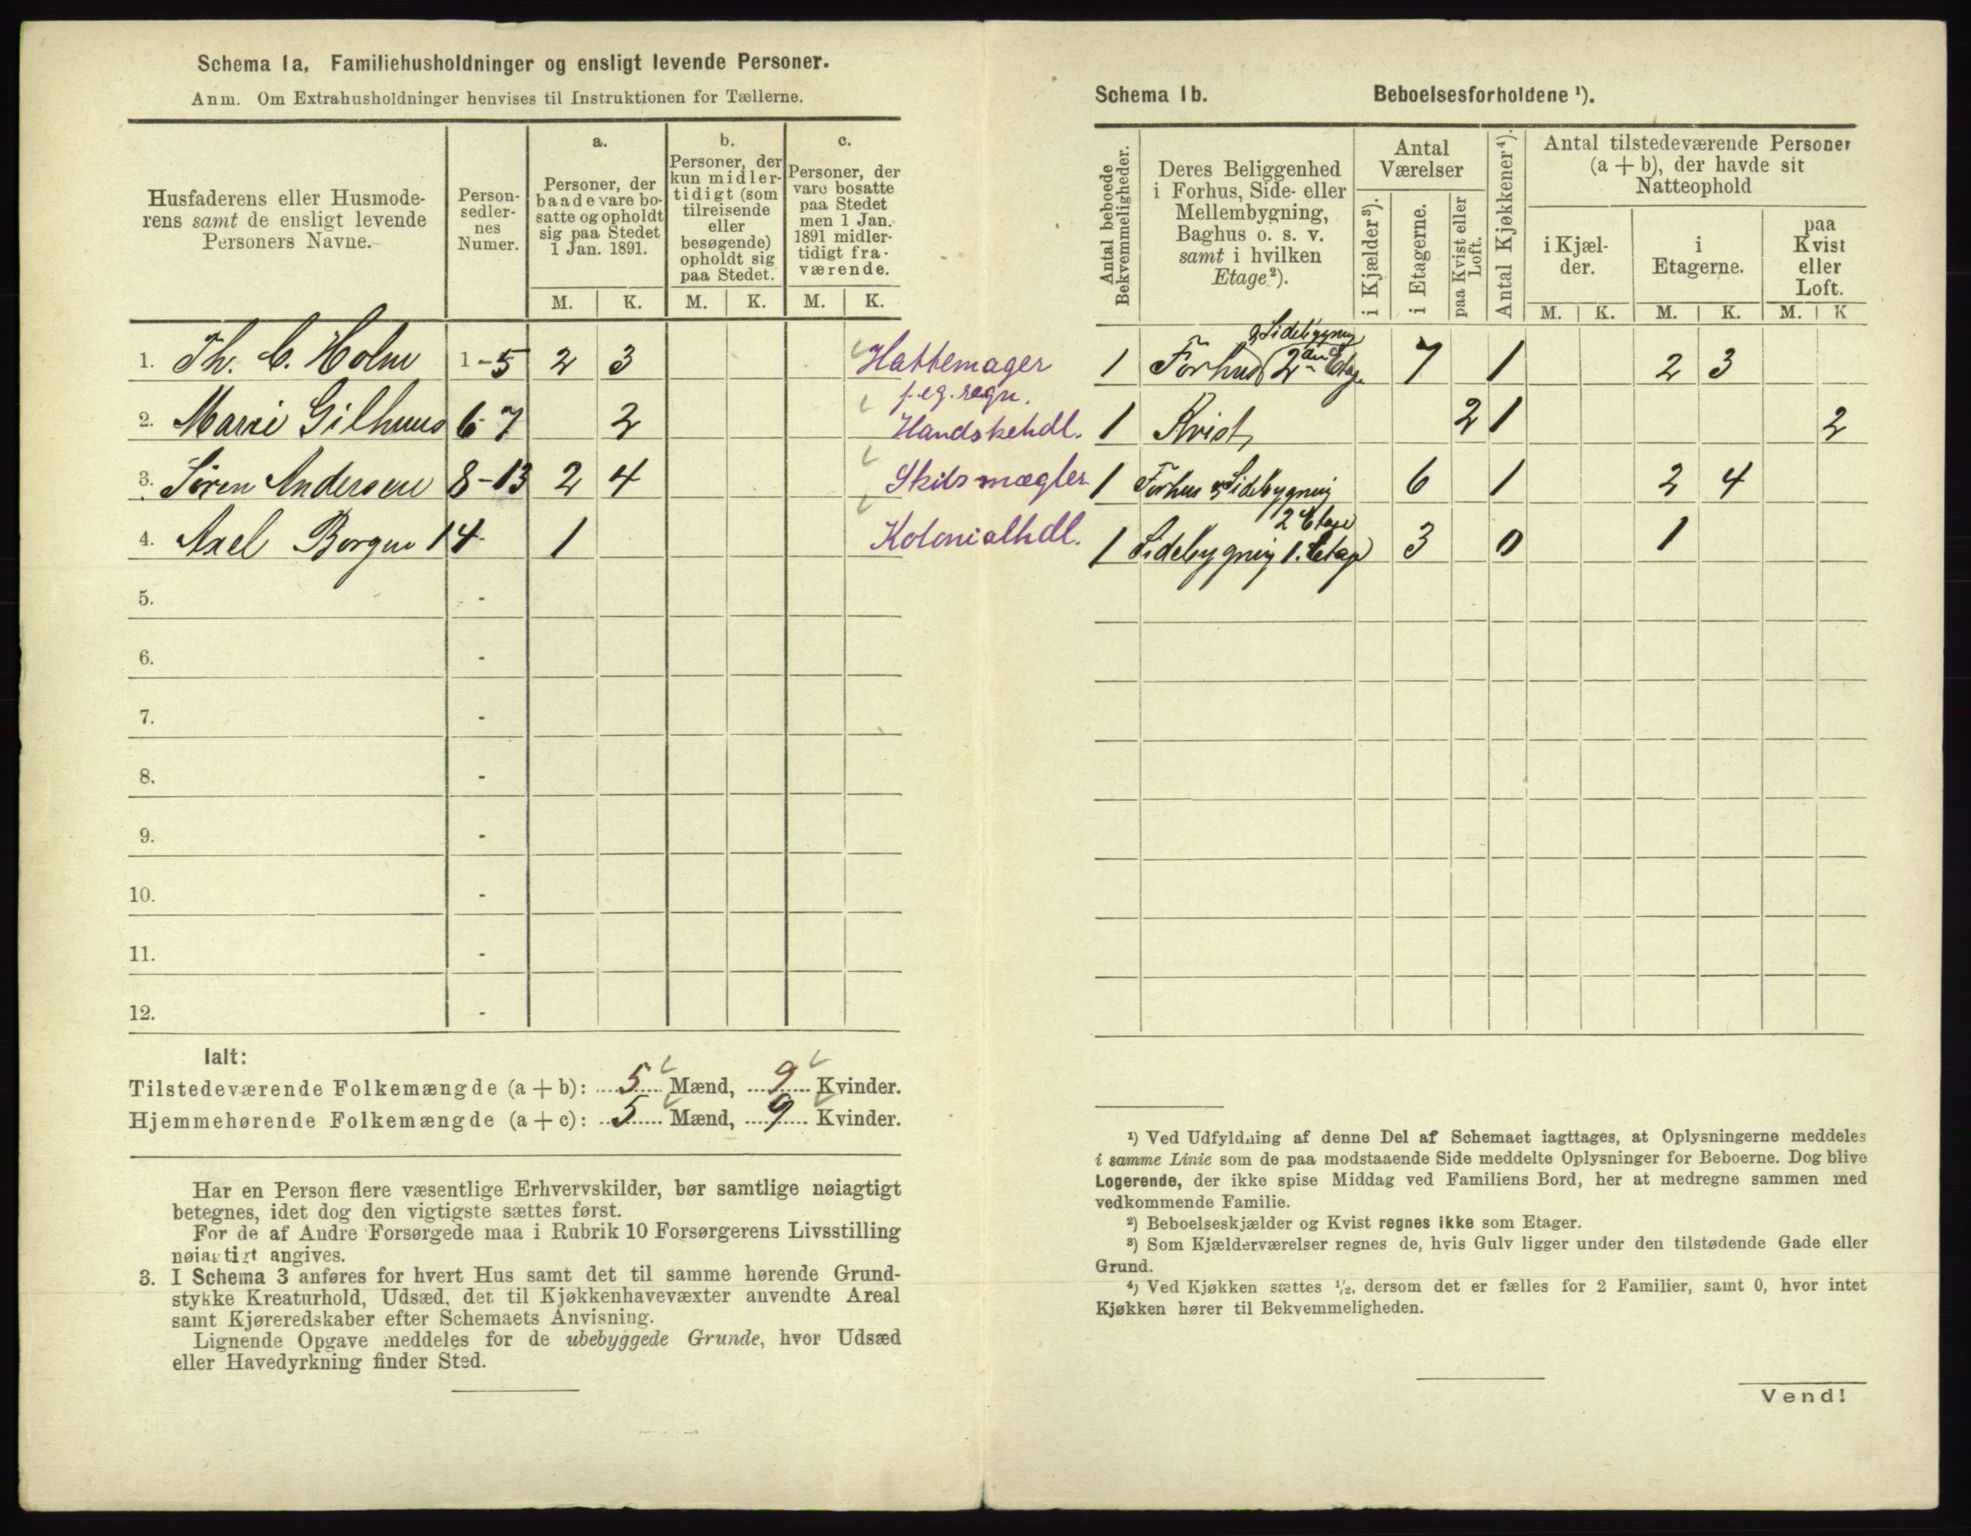 Schema 1a, Familiehusholdninger og ensligt levende Personer.
Anm. Om Extrahusholdninger henvises til Instruktionen for Tællerne.
Husfaderens eller Husmode-
rens samt de ensligt levende
Personers Navne.
Person-
sedler-
nes
Numer.
a.
Personer, der
baade vare bo-
satte og opholdt
sig paa Stedet
1 Jan. 1891.
b.
Personer, der
kun midler-
tidigt (som
tilreisende
eller
besøgende)
opholdt sig
paa Stedet.
c.
Personer, der
vare bosatte
paa Stedet
men 1 Jan.
1891 midler-
tidigt fra-
værende.
M. K. M. K. M. K.
1. Th. C. Holm 1-5 2 3 Hattemager
f. eg. regn.
2. Marie Gilhuus 6-7 2 Handskehdl.
3. Søren Andersen 8-13 2 4 Skibsmægler
4. Axel Borgen 14 - 1 Kolonialhdl.
5. -
6. -
7. -
8. -
9. -
10. -
11. -
12. -
Ialt:
Tilstedeværende Folkemængde (a + b): 5 Mænd, 9 Kvinder.
Hjemmehørende Folkemængde (a + c): 5 Mænd, 9 Kvinder.
Har en Person flere væsentlige Erhvervskilder, bør samtlige nøiagtigt
betegnes, idet dog den vigtigste sættes først.
For de af Andre Forsørgede maa i Rubrik 10 Forsørgerens Livsstilling
nøiagtigt angives.
3. I Schema 3 anføres for hvert Hus samt det til samme hørende Grund-
stykke Kreaturhold, Udsæd, det til Kjøkkenhavevæxter anvendte Areal
samt Kjøreredskaber efter Schemaets Anvisning.
Lignende Opgave meddeles for de ubebyggede Grunde, hvor Udsæd
eller Havedyrkning finder Sted.
Schema 1b. Beboelsesforholdene ¹).
Antal beboede
Bekvemmeligheder.
Deres Beliggenhed
i Forhus, Side- eller
Mellembygning,
Baghus o. s. v.
samt i hvilken
Etage²).
Antal
Værelser
i Kjælder³).
i Etagerne.
paa Kvist eller
Loft.
Antal Kjøkkener⁴).
Antal tilstedeværende Personer
(a + b), der havde sit
Natteophold
i Kjæl-
der.
i
Etagerne.
paa
Kvist
eller
Loft.
M. K. M. K. M. K
g Sidebygning
1 Forhus 2den Etage 7 1 2 3
1 Kvist 2 1 2
1 Forhus og Sidebygning 6 1 2 4
2 Etage
1 Sidebygning 1. Etage 3 0 1
¹) Ved Udfyldning af denne Del af Schemaet iagttages, at Oplysningerne meddeles
i samme Linie som de paa modstaaende Side meddelte Oplysninger for Beboerne. Dog blive
Logerende, der ikke spise Middag ved Familiens Bord, her at medregne sammen med
vedkommende Familie.
²) Beboelseskjælder og Kvist regnes ikke som Etager.
³) Som Kjælderværelser regnes de, hvis Gulv ligger under den tilstødende Gade eller
Grund.
⁴) Ved Kjøkken sættes ¹/₂, dersom det er fælles for 2 Familier, samt 0, hvor intet
Kjøkken hører til Bekvemmeligheden.
Vend!